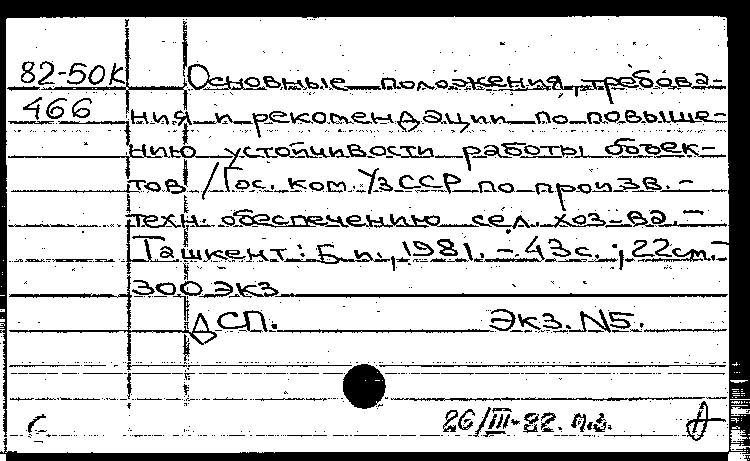 82-50К Основные положения, требова-
466 ния и рекомендации по повыше-
нию устойчивости работы объек-
тов / Гос. ком. УзССР по произв.-
техн. обеспечению сел. хоз-ва. -
Ташкент: Б. и., 1981. - 43с.; 22см.-
300 экз
ДСП. Экз. N5.
26/III-82. п.з.